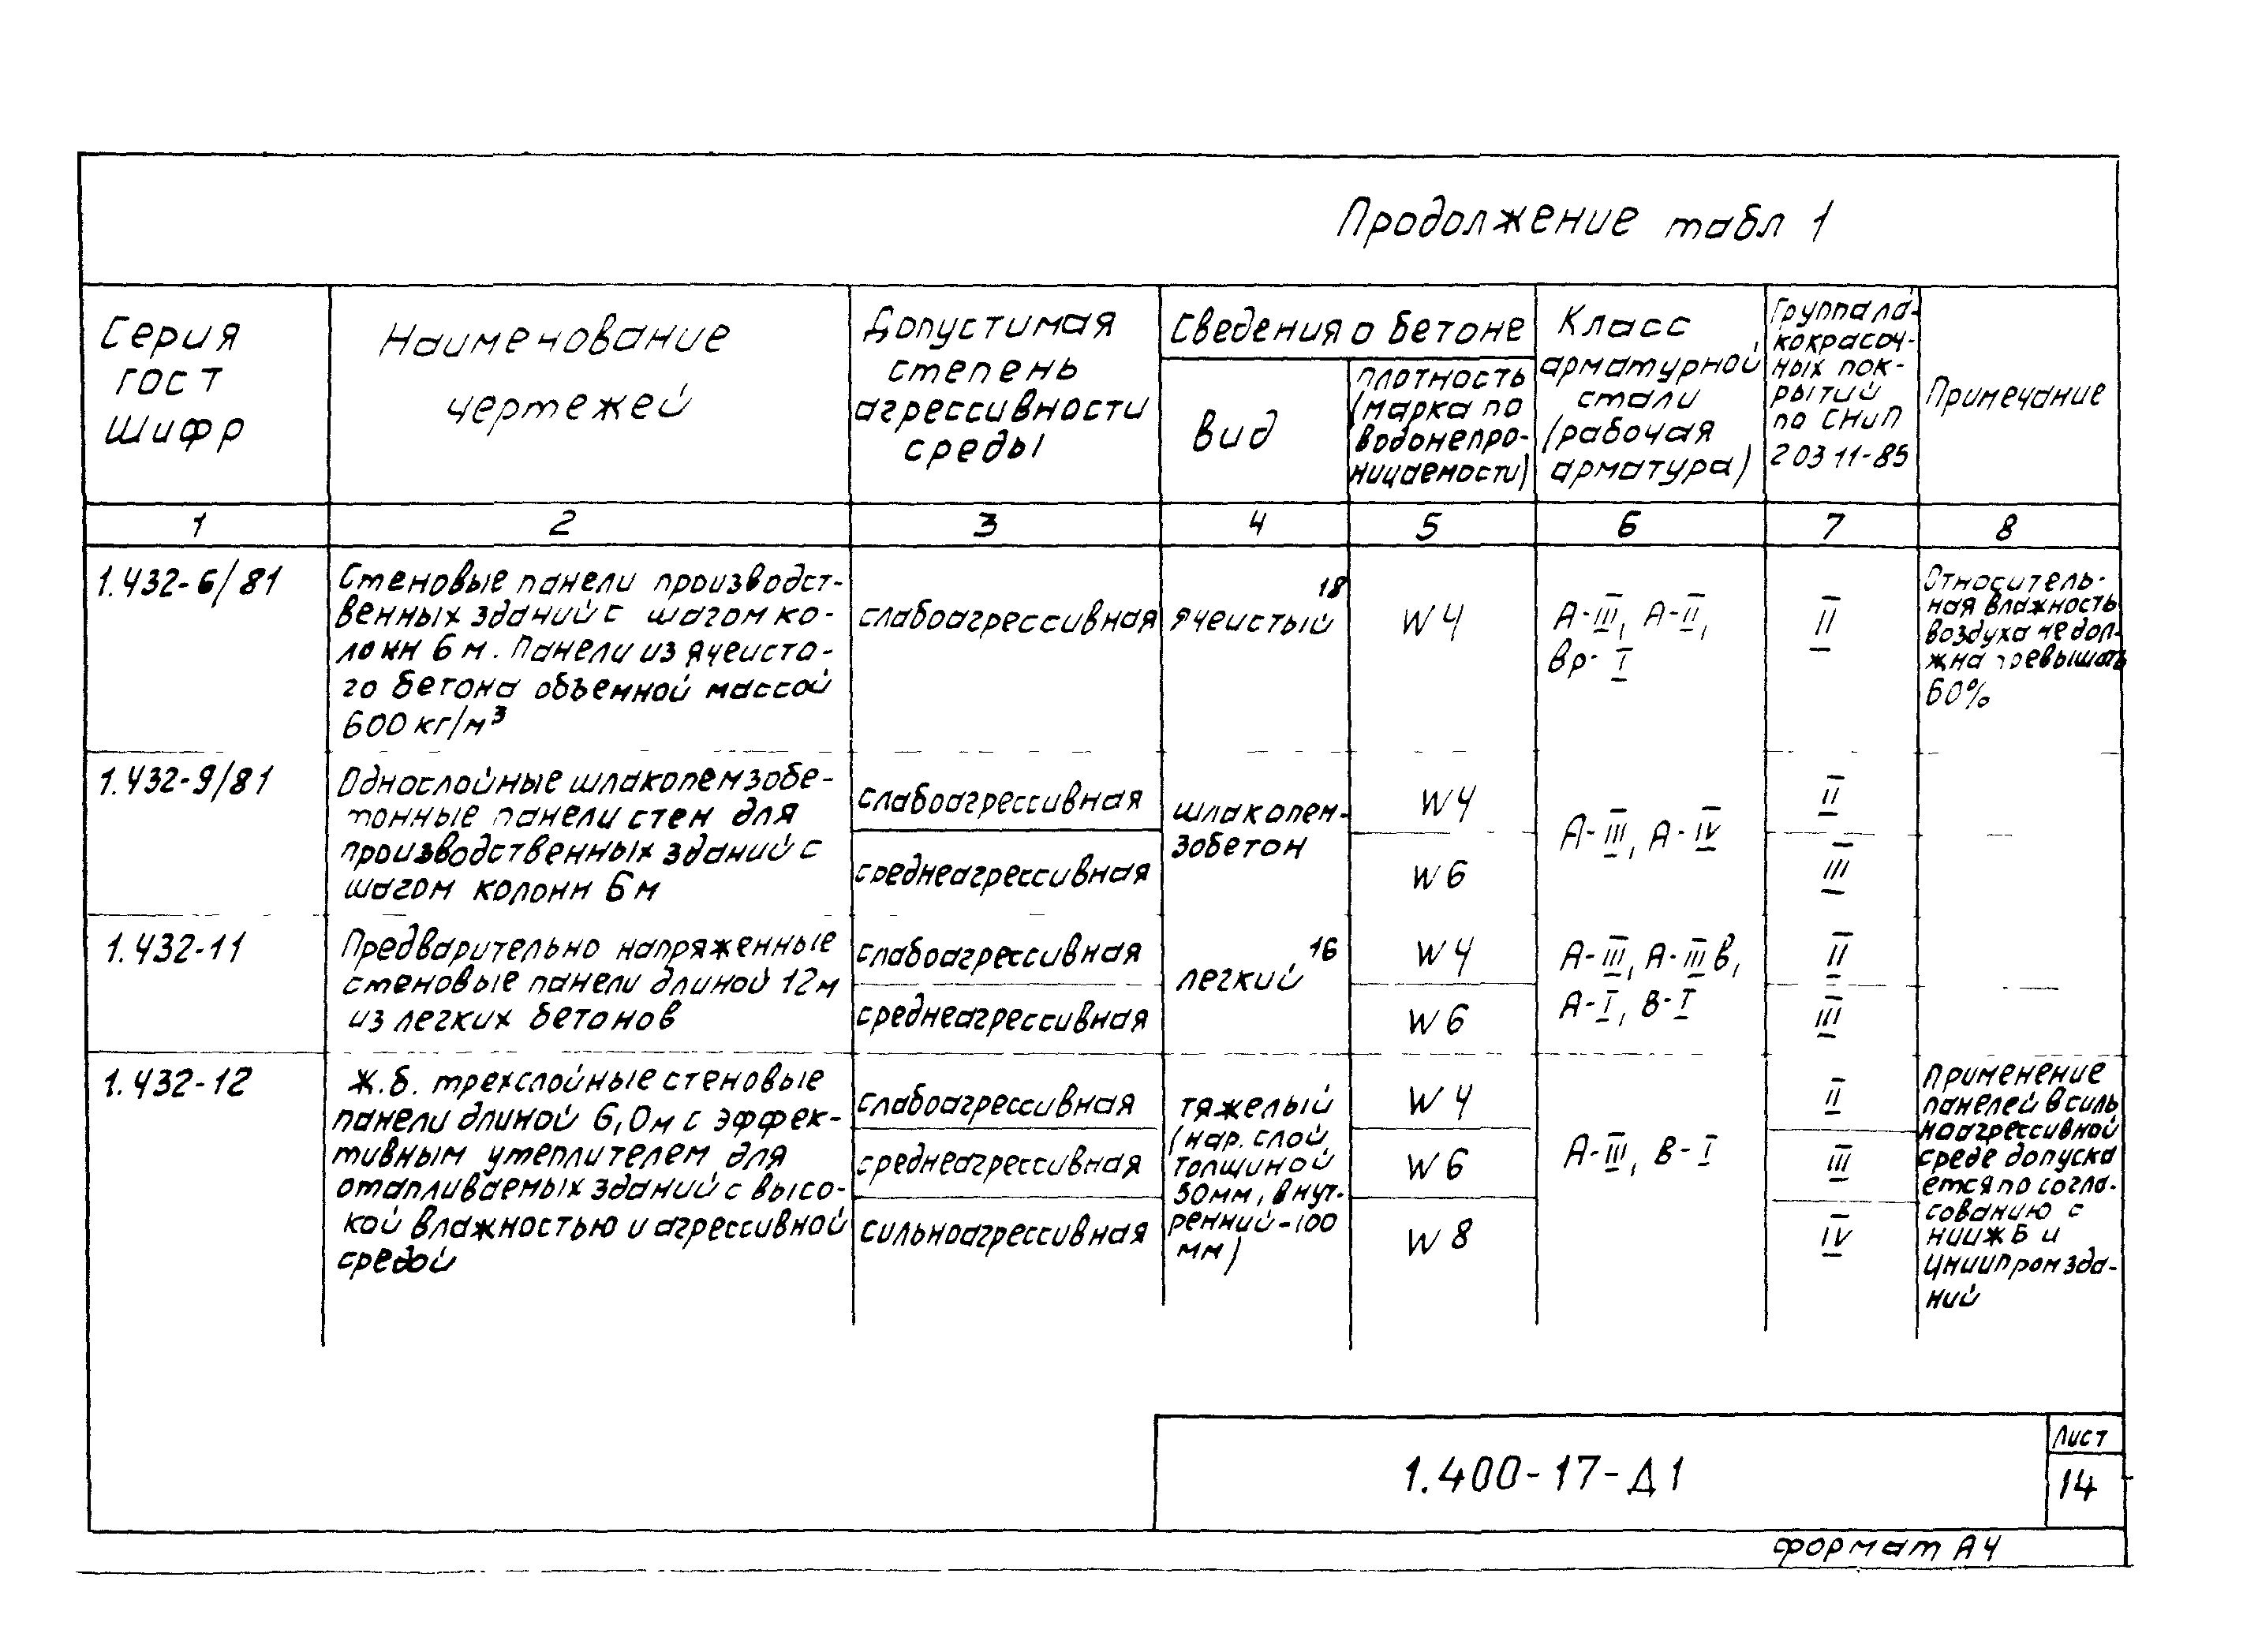 Продолжение табл 1
Серия
ГОСТ
Шифр
Наименование
чертежей
Допустимая
степень
агрессивности
среды
Сведения о бетоне
Вид
плотность
(марка по
водонепро-
ницаемости)
Класс
арматурной
стали
(рабочая
арматура)
Группа ла-
кокрасоч-
ных пок-
рытий
по СНиП
2 03 11-85
Примечание
1 2 3 4 5 6 7 8
1.432-6/81
Стеновые панели производст-
венных зданий с шагом ко-
лонн 6 м. Панели из ячеисто-
го бетона объемной массой
600 кг/м³
слабоагрессивная
ячеистый 18
W4
А-III, А-II,
Вр-I
II
Относитель-
ная влажность
воздуха не дол-
жна превышать
60%
1.432-9/81
Однослойные шлакопемзобе-
тонные панели стен для
производственных зданий с
шагом колонн 6 м
слабоагрессивная
среднеагрессивная
шлакопем-
зобетон
W4
W6
А-III, А-IV
II
III
—
1.432-11
Предварительно напряженные
стеновые панели длиной 12 м
из легких бетонов
слабоагрессивная
среднеагрессивная
легкий 16
W4
W6
А-III, А-III в,
А-I, В-I
II
III
—
1.432-12
Ж.б. трехслойные стеновые
панели длиной 6,0 м с эффек-
тивным утеплителем для
отапливаемых зданий с высо-
кой влажностью и агрессивной
средой
слабоагрессивная
среднеагрессивная
сильноагрессивная
тяжелый
(нар. слой
толщиной
50мм, внут-
ренний-100
мм)
W4
W6
W8
А-III, В-I
II
III
IV
Применение
панелей в силь
ноагрессивной
среде допуска
ется по согла-
сованию с
НИИЖБ и
ЦНИИПромзда-
ний
1.400-17-Д1
Лист
14
формат А4